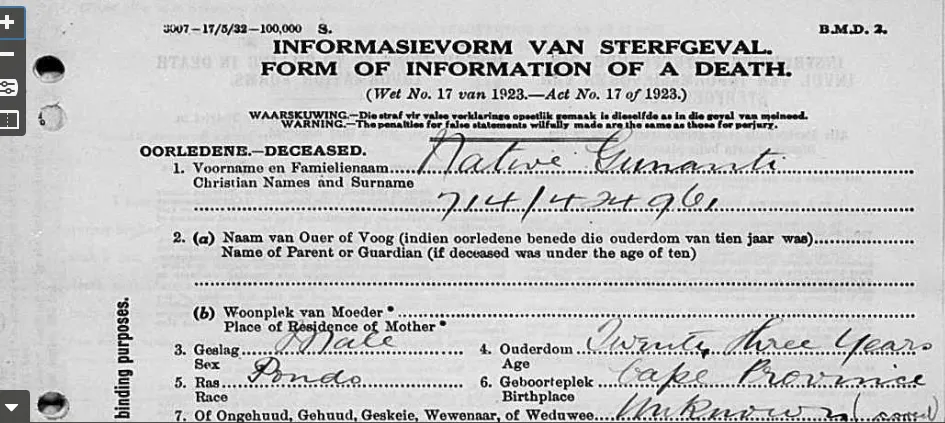 3007—17/5/32—100,000 S. B.M.D. 2.
INFORMASIEVORM VAN STERFGEVAL.
FORM OF INFORMATION OF A DEATH.
(Wet No. 17 van 1923.—Act No. 17 of 1923.)
WAARSKUWING.—Die straf vir valse verklarings opsetlik gemaak is dieselfde as in die geval van meineed.
WARNING.—The penalties for false statements wilfully made are the same as those for perjury.
OORLEDENE.—DECEASED.
1. Voorname en Familienaam Native
Christian Names and Surname
714/424961
2. (a) Naam van Ouer of Voog (indien oorledene benede die ouderdom van tien jaar was)
Name of Parent or Guardian (if deceased was under the age of ten)
(b) Woonplek van Moeder *
Place of Residence of Mother *
3. Geslag Male 4. Ouderdom Twenty three Years
Sex Age
5. Ras Pondo 6. Geboorteplek Cape Province
Race Birthplace
7. Of Ongehuud, Gehuud, Geskeie, Wewenaar, of Weduwee Unknown
binding purposes.